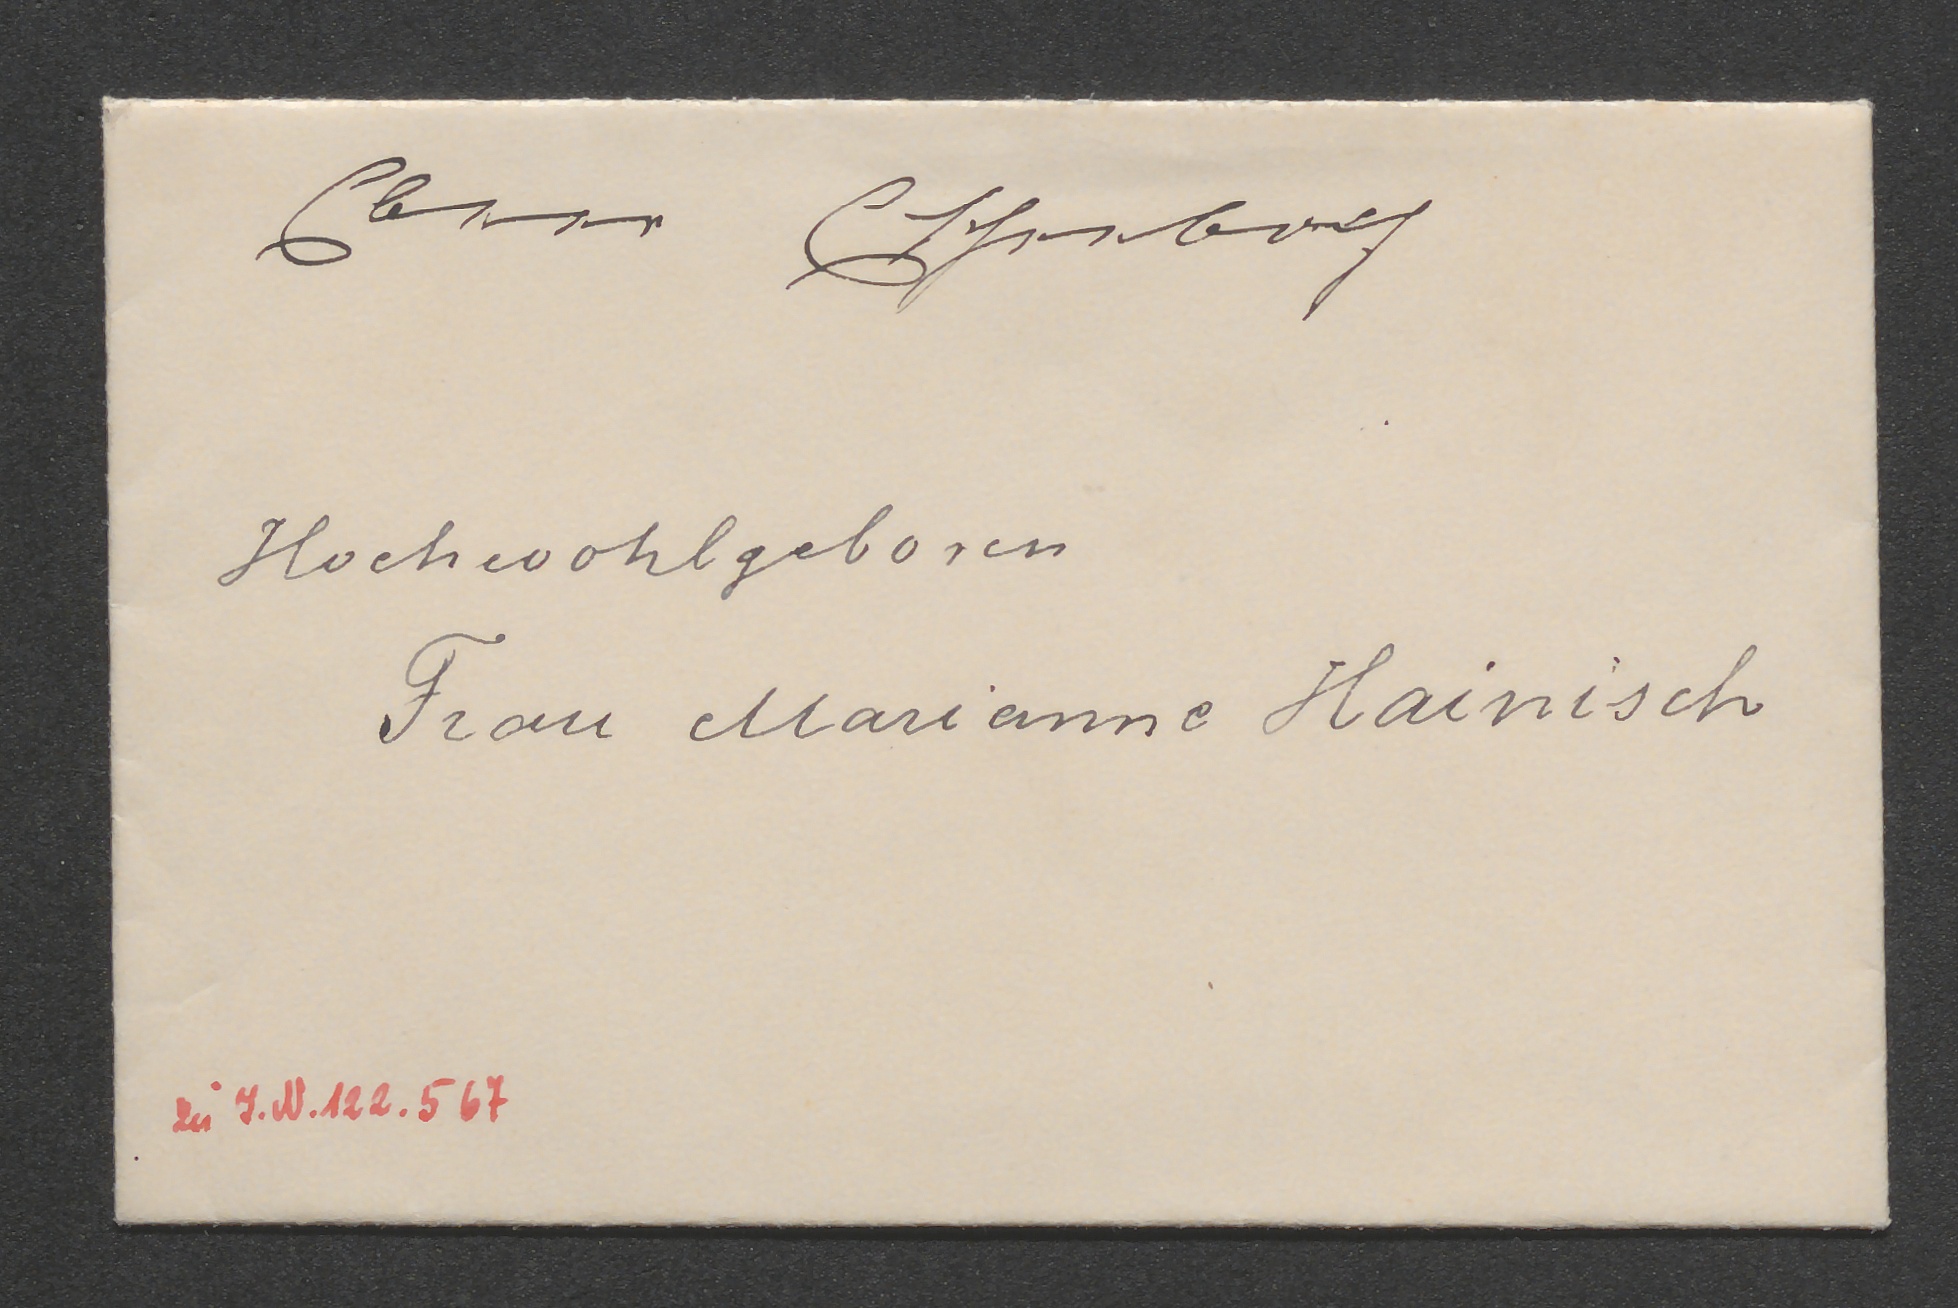 Hochwohlgeboren
Frau Marianne Hainisch
zu I.N.122.567